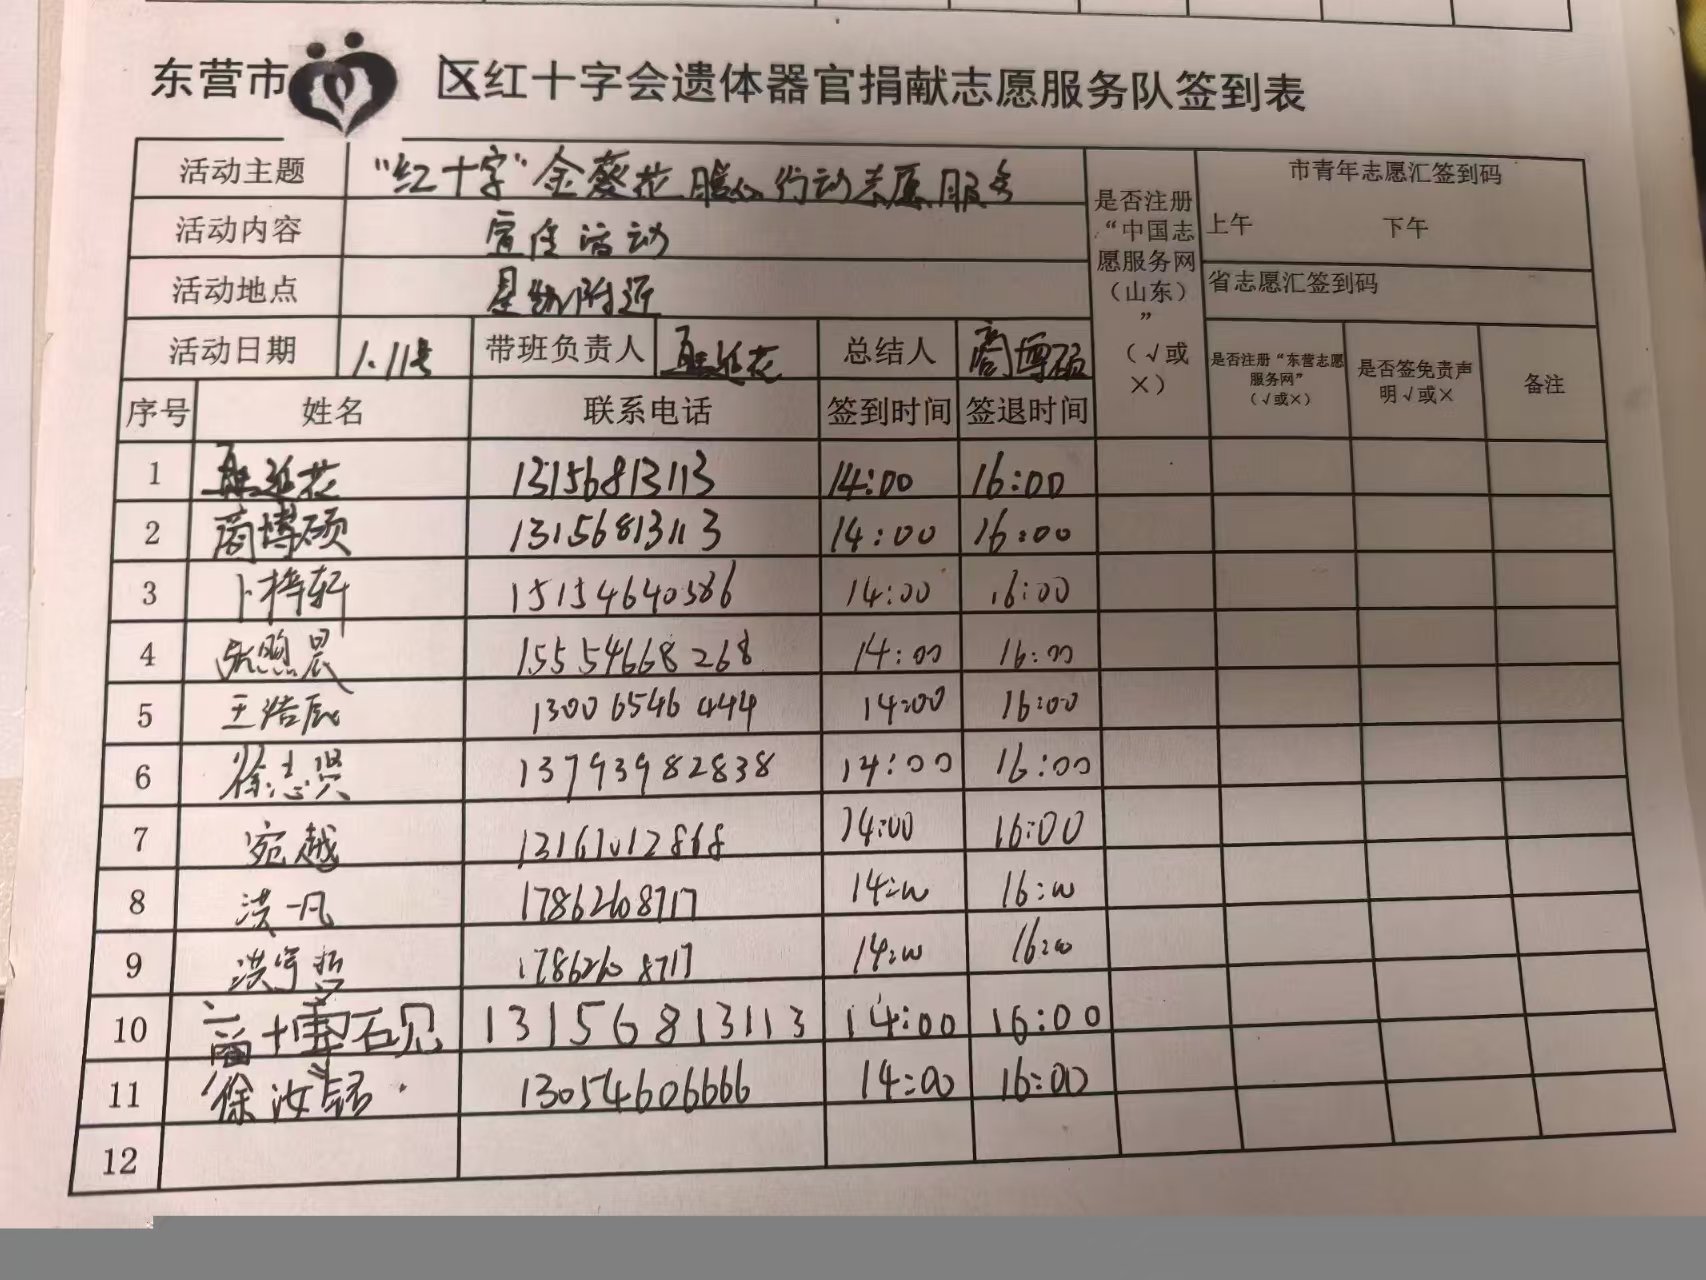 东营市 区红十字会遗体器官捐献志愿服务队签到表
活动主题 “红十字”金葵花暖心行动志愿服务
活动内容 宣传活动
活动地点 附近
活动日期 1.11号 带班负责人 总结人 商博硕
是否注册“中国志愿服务网（山东）”（√或×）
市青年志愿汇签到码
上午 下午
省志愿汇签到码
是否注册“东营志愿服务网”（√或×） 是否签免责声明√或× 备注
序号 姓名 联系电话 签到时间 签退时间
1 13156813113 14:00 16:00
2 商博硕 13156813113 14:00 16:00
3 卜梓轩 15154640386 14:00 16:00
4 15554668268 14:00 16:00
5 王浩辰 13006546444 14:00 16:00
6 徐志贤 13793982838 14:00 16:00
7 宛越 14:00 16:00
8 洪一凡 17862608717 14:00 16:00
9 17862608717 14:00 16:00
10 商博砚 13156813113 14:00 16:00
11 徐汝 13054606666 14:00 16:00
12